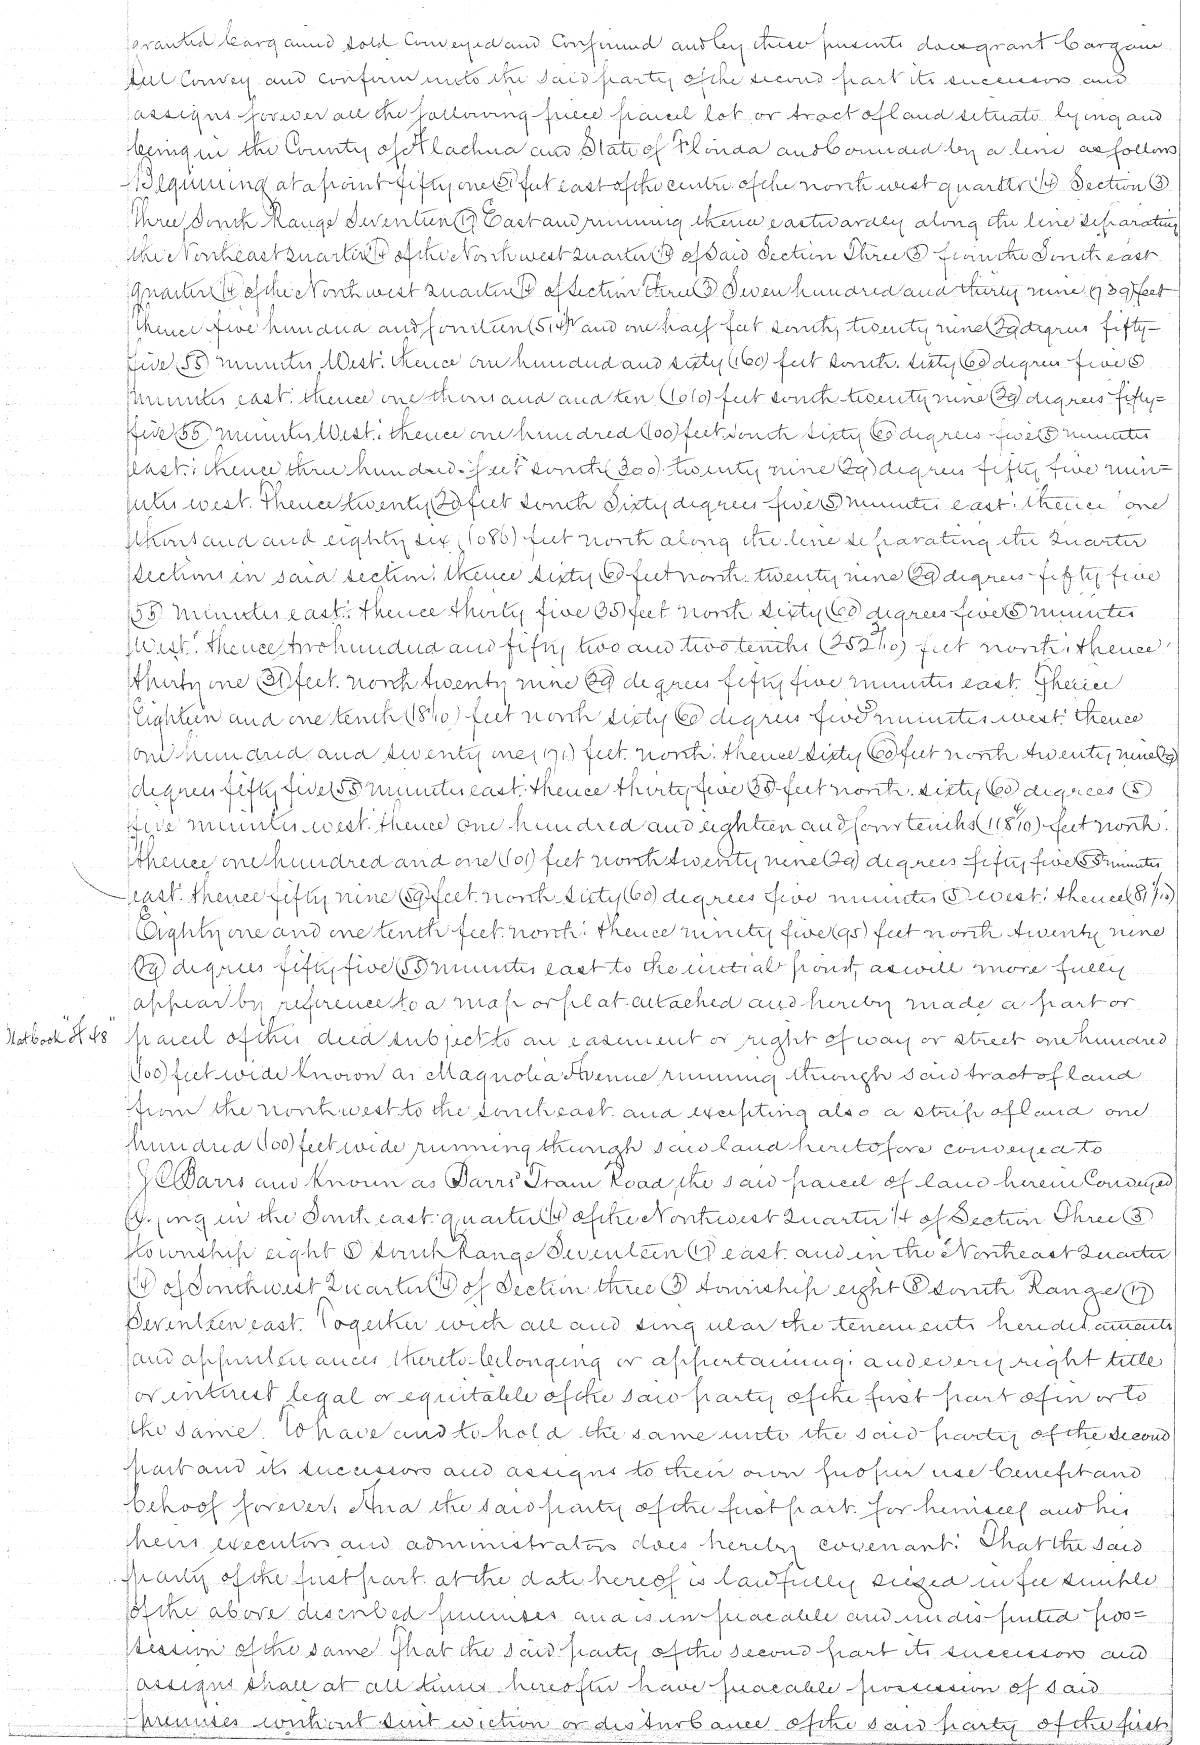 granted bargained sold Conveyed and Confirmed and by these presents does grant bargain
sell Convey and confirm unto the said party of the second part its successors and
assigns forever all the following piece parcel lot or tract of land situate lying and
being in the County of Alachua and State of Florida and bounded by a line as follows
Beginning at a point fifty one (51) feet east of the centre of the north west quarter (1/4) Section (3)
Three South Range Seventeen (17) East and running thence eastwardly along the line separating
the Northeast quarter 1/4 of the Northwest quarter 1/4 of Said Section Three (3) from the South east
quarter 1/4 of the North west quarter 1/4 of Section three (3) Seven hundred and thirty nine (739) feet
thence five hundred and fourteen (514 and one half feet south, twenty nine (29) degrees fifty-
five (55) minutes West: thence one hundred and sixty (160) feet south. sixty (60) degrees five (5)
minutes east: thence one thousand and ten (1010) feet south twenty nine (29) degrees fifty=
five (55) minutes West: thence one hundred (100) feet south sixty (60) degrees five (5) minutes
east: thence three hundred feet south (300) twenty nine (29) degrees fifty five min=
utes west. Thence twenty (20) feet south Sixty degrees five (5) minutes east: thence one
thousand and eighty six (1086) feet north along the line separating the quarter
sections in said section: thence sixty (60) feet north. twenty nine (29) degrees fifty five
(55) minutes east: thence thirty five (35) feet north sixty (60) degrees five (5) minutes
West: thence two hundred and fifty two and two tenths (252 2/10) feet north: thence
thirty one (31) feet. north twenty nine (29) degrees fifty five minutes east. Thence
Eighteen and one tenth (18 1/10) feet north sixty (60) degrees five (5) minutes west: thence
one hundred and twenty one (121) feet. north: thence sixty (60) feet north twenty nine (29)
degrees fifty five (55) minutes east: thence thirty five (35) feet north. sixty (60) degrees (5)
five minutes west: thence one hundred and eighteen and four tenths (118 4/10) feet north:
thence one hundred and one (101) feet north twenty nine (29) degrees fifty five (55) minutes
east: thence fifty nine (59) feet. north sixty (60) degrees five minutes (5) west: thence (81 1/10)
Eighty one and one tenth feet. north: thence ninety five (95) feet north twenty nine
(29) degrees fifty five (55) minutes east to the initial point, as will more fully
appear by reference to a map or plat attached and hereby made a part or
Plat book "A" 48" parcel of this deed subject to an easement or right of way or street one hundred
(100) feet wide Known as Magnolia Avenue running through said tract of land
from the northwest to the southeast. and excepting also a strip of land one
hundred (100) feet wide running through said land heretofore conveyed to
J C Barrs and Known as Barrs' Tram Road, the said parcel of land herein Conveyed
lying in the South east quarter 1/4 of the Northwest quarter 1/4 of Section Three (3)
township eight (8) south Range Seventeen (17) east. and in the Northeast quarter
(1/4) of Southwest quarter (1/4) of Section three (3) township eight (8) south Range (17)
Seventeen east. Together with all and singular the tenements hereditaments
and appurtenances thereto belonging or appertaining: and every right title
or interest legal or equitable of the said party of the first part of in or to
the same. To have and to hold the same unto the said party of the second
part and its successors and assigns to their own proper use benefit and
behoof forever. And the said party of the first part. for himself and his
heirs executors and administrators does hereby covenant: That the said
party of the first part. at the date hereof is lawfully siezed in fee simple
of the above described premises and is in peacable and undisputed pos=
session of the same That the said party of the second part its successors and
assigns shall at all times hereafter have peacable possession of said
premises without suit eviction or disturbance of the said party of the first